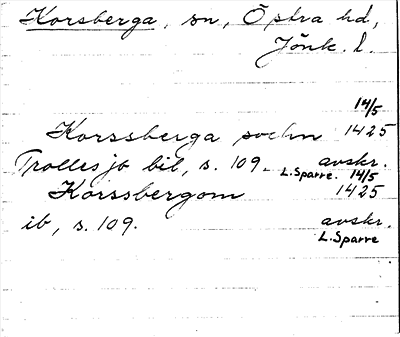 Korsberga, sn, Östra hd,
Jönk. l.
14/5
Korssberga sochn 1425
Trolles jb bil, s. 109. avskr.
L. Sparre. 14/5
Korssbergom 1425
ib, s. 109. avskr.
L. Sparre